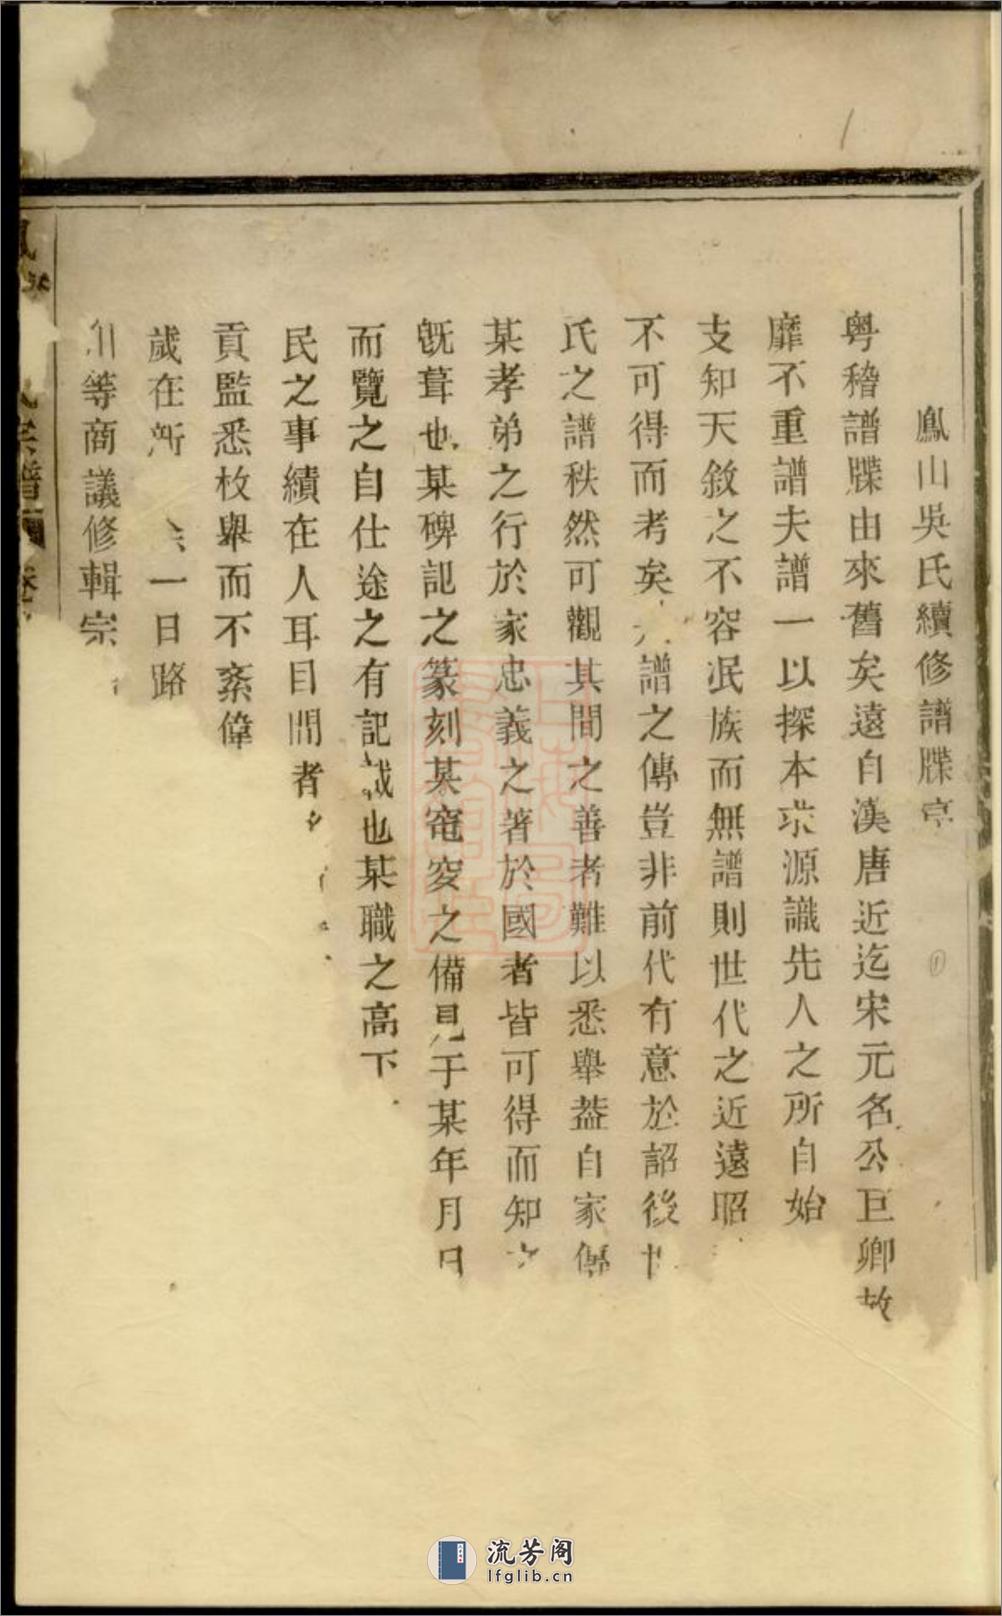 鳳山吳氏續修譜牒序
粤稽譜牒由來舊矣遠自漢唐近迄宋元名公巨卿故
靡不重譜夫譜一以探本求源識先人之所自始
支知天敘之不容泯族而無譜則世代之近遠昭
不可得而考矣 譜之傳豈非前代有意於詔後
氏之譜秩然可觀其間之善者難以悉舉葢自家傳
某孝弟之行於家忠義之著於國者皆可得而知
旣葺也某碑記之篆刻某窀穸之備見于某年月日
而覽之自仕途之有記誠也某職之高下
民之事績在人耳目間者
貢監悉枚舉而不紊偉
歲在 一日路
川等商議修輯宗
氏宗譜
流芳阁
lfglib.cn